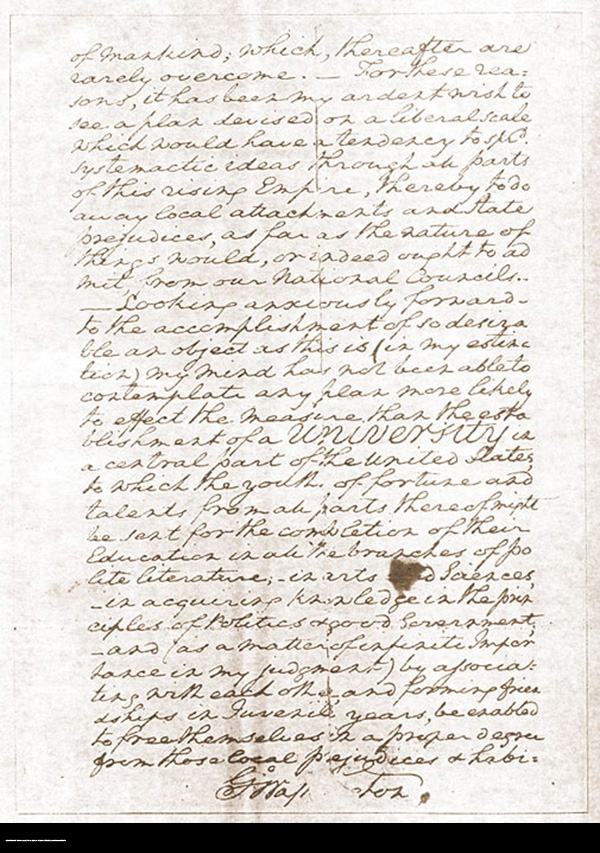 of mankind; which, thereafter are
rarely overcome. — For these rea=
sons, it has been my ardent wish to
see a plan devised on a liberal scale
which would have a tendency to sprd.
systemactic ideas through all parts
of this rising Empire, thereby to do
away local attachments and State
prejudices, as far as the nature of
things would, or indeed ought to ad
mit, from our National Councils.-
— Looking anxiously forward
to the accomplishment of so desira
ble an object as this is (in my estima
tion) my mind has not been able to
contemplate any plan more likely
to effect the measure than the esta
blishment of a UNIVERSITY in
a central part of the United States,
to which the youth of fortune and
talents from all parts thereof might
be sent for the completion of their
Education in all the branches of po
lite literature;- in arts and Sciences,
- in acquiring knowledge in the prin
ciples of Politics & good Government;
- and (as a matter of infinite Impor
tance in my judgment) by associa=
ting with each other, and forming frien
dships in Juvenile years, be enabled
to free themselves in a proper degree
from those local prejudices & habi=